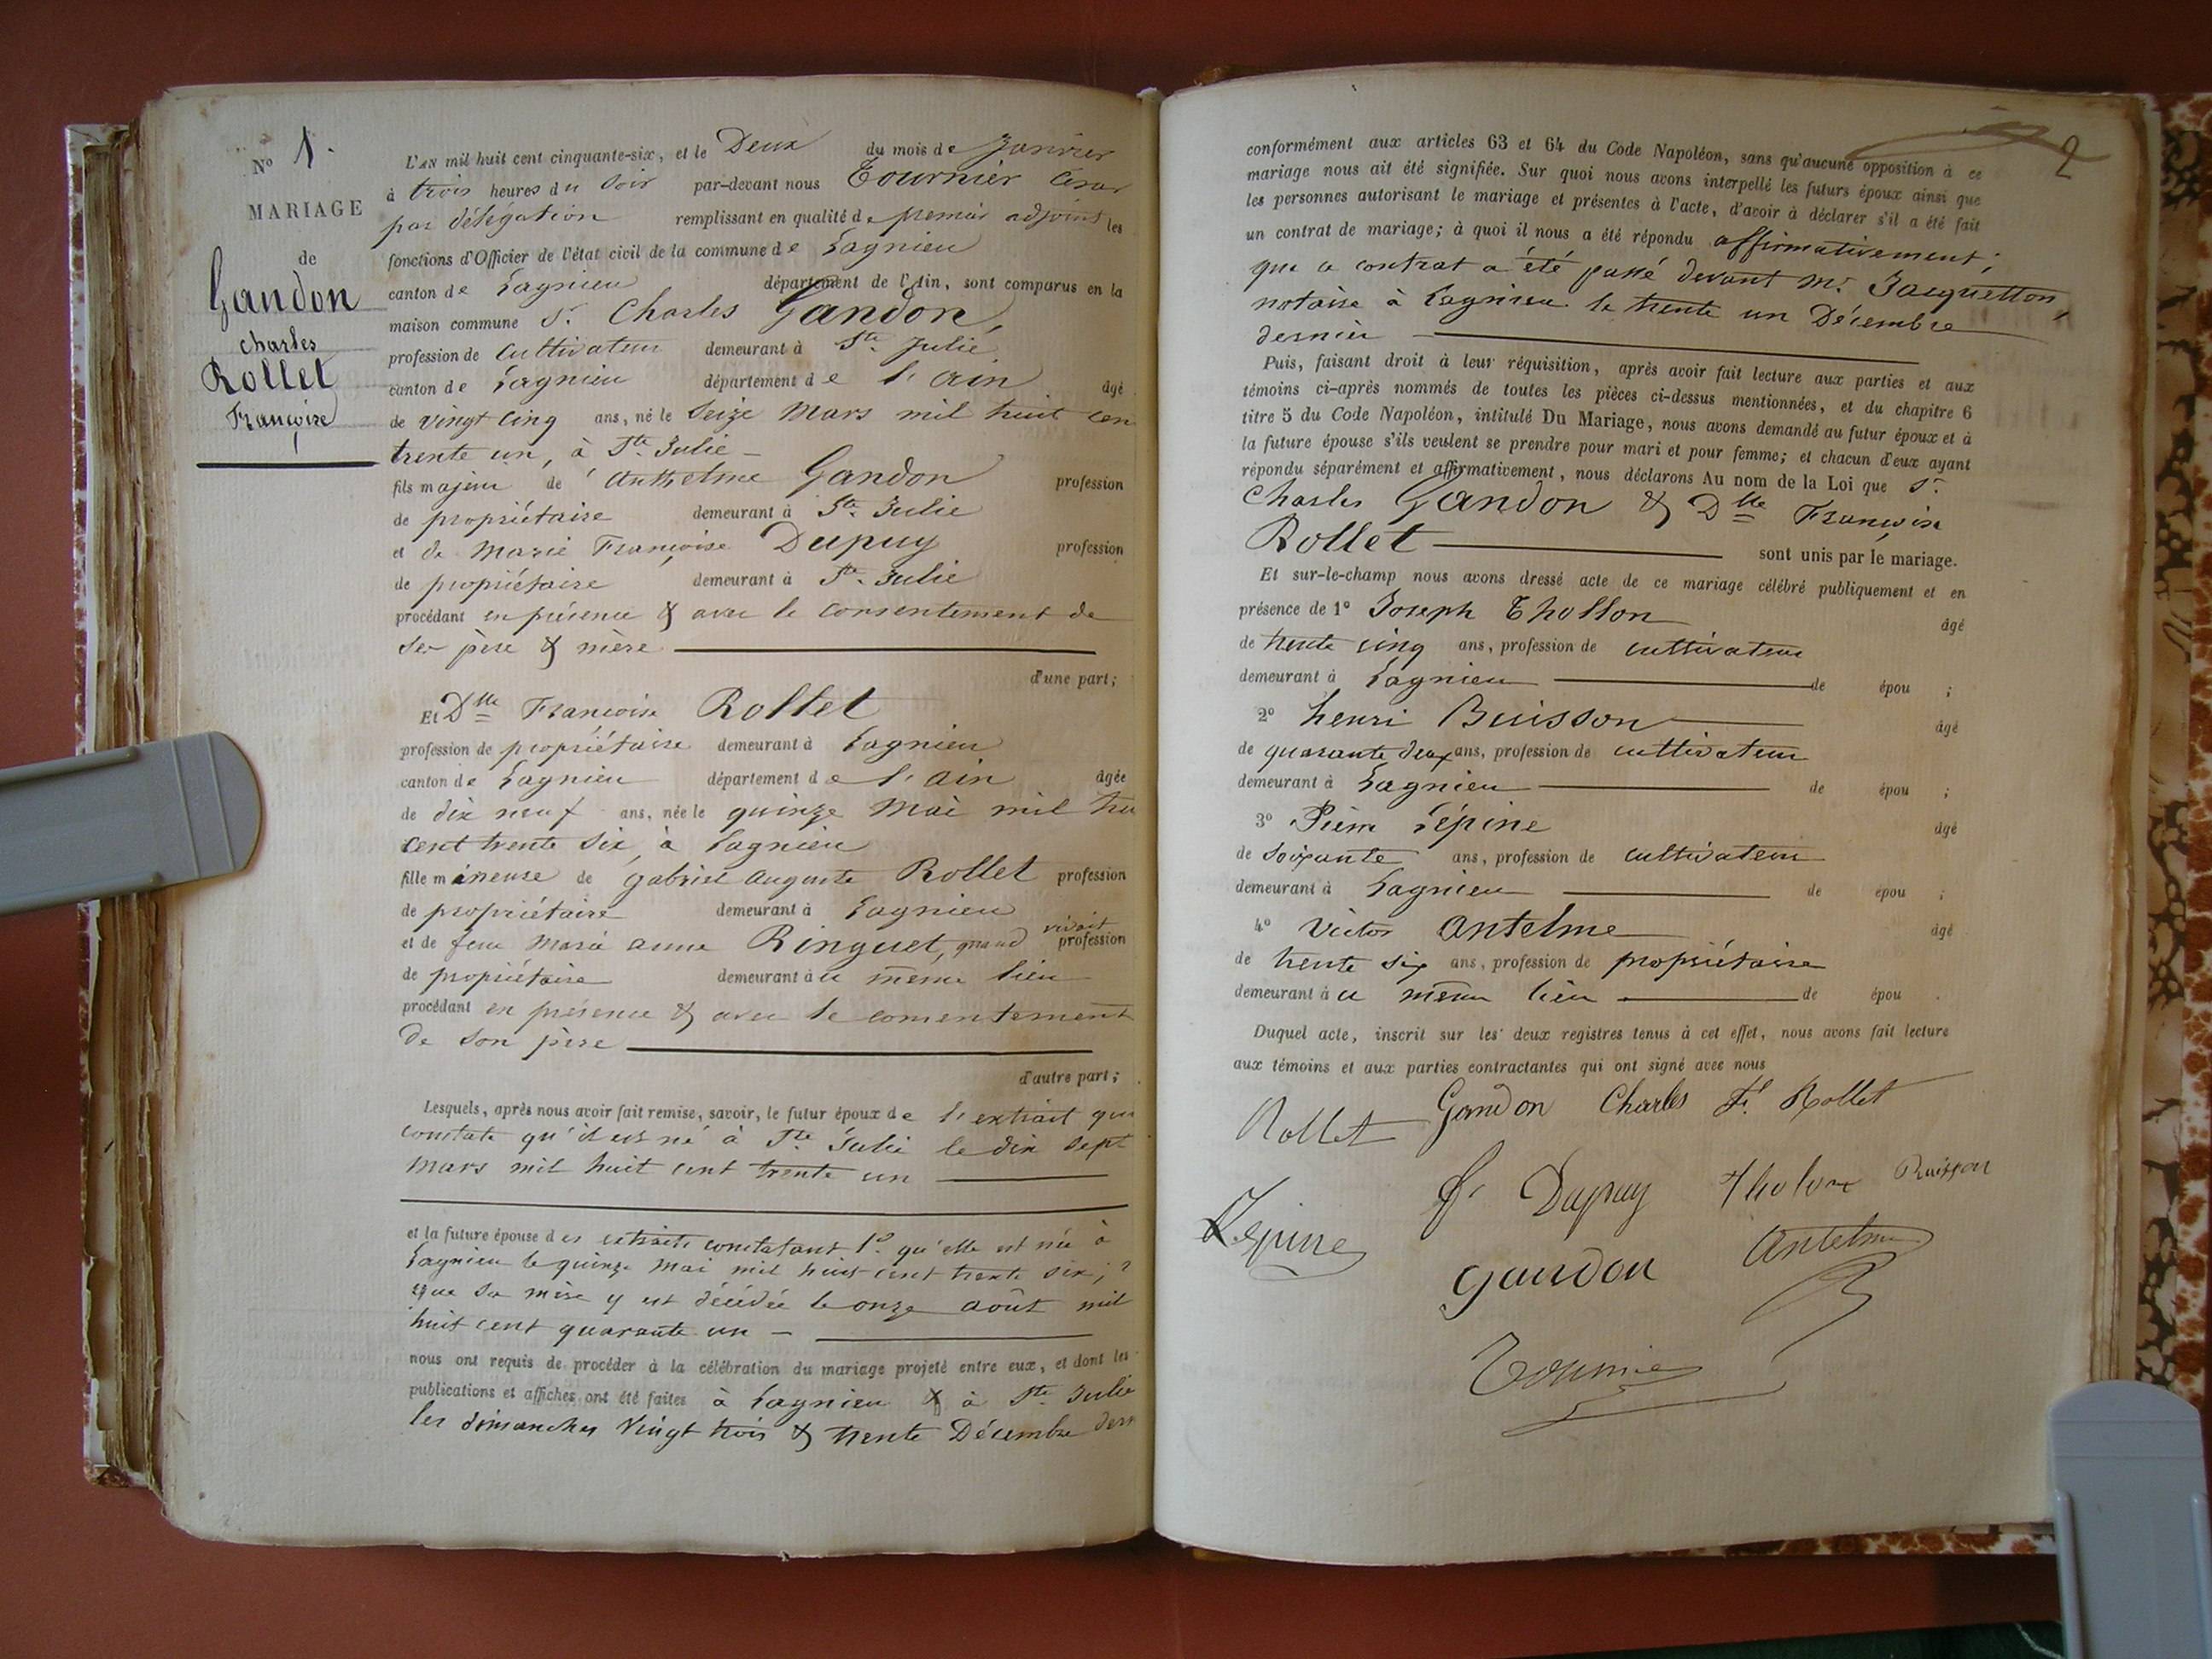 N° 1.
MARIAGE
de
Gandon
Charles
Rollet
Françoise
L'AN mil huit cent cinquante-six, et le Deux du mois de Janvier
à trois heures du Soir par-devant nous Tournier César
par délégation remplissant en qualité de premier adjoint les
fonctions d'Officier de l'état civil de la commune de Lagnieu
canton de Lagnieu département de l'Ain, sont comparus en la
maison commune Sr. Charles Gandon,
profession de Cultivateur demeurant à Ste. Julie
canton de Lagnieu département de l'ain âgé
de vingt cinq ans, né le Seize Mars mil huit cen
trente un, à Ste. Julie –
fils majeur de Anthelme Gandon profession
de propriétaire demeurant à Ste. Julie
et de Marie Françoise Dupuy profession
de propriétaire demeurant à Ste. Julie
procédant en présence & avec le consentement de
ses père & mère
d'une part;
Et Dlle Françoise Rollet
profession de propriétaire demeurant à Lagnieu
canton de Lagnieu département de l'ain âgée
de dix neuf ans, née le quinze Mai mil hui
cent trente six, à Lagnieu
fille mineure de Gabriel Auguste Rollet profession
de propriétaire demeurant à Lagnieu
et de feue Marie anne Ringuet, quand vivait profession
de propriétaire demeurant à ce même lieu
procédant en présence & avec le consentement
de son père
d'autre part;
Lesquels, après nous avoir fait remise, savoir, le futur époux de l'extrait qui
constate qu'il est né à Ste. Julie le dix sept
mars mil huit cent trente un
et la future épouse des extraits constatant 1°. qu'elle est née à
Lagnieu le quinze Mai mil huit cent trente six; 2
que sa mère y est décédée le onze août mil
huit cent quarante un –
nous ont requis de procéder à la célébration du mariage projeté entre eux, et dont les
publications et affiches ont été faites à Lagnieu & à Ste. Julie
les dimanches vingt trois & trente Décembre dern
2
conformément aux articles 63 et 64 du Code Napoléon, sans qu'aucune opposition à ce
mariage nous ait été signifiée. Sur quoi nous avons interpellé les futurs époux ainsi que
les personnes autorisant le mariage et présentes à l'acte, d'avoir à déclarer s'il a été fait
un contrat de mariage; à quoi il nous a été répondu affirmativement;
que ce contrat a été passé devant Me. Jacquetton,
notaire à Lagnieu le trente un Décembre
dernier
Puis, faisant droit à leur réquisition, après avoir fait lecture aux parties et aux
témoins ci-après nommés de toutes les pièces ci-dessus mentionnées, et du chapitre 6
titre 5 du Code Napoléon, intitulé Du Mariage, nous avons demandé au futur époux et à
la future épouse s'ils veulent se prendre pour mari et pour femme; et chacun d'eux ayant
répondu séparément et affirmativement, nous déclarons Au nom de la Loi que Sr.
Charles Gandon & Dlle Françoise
Rollet sont unis par le mariage.
Et sur-le-champ nous avons dressé acte de ce mariage célébré publiquement et en
présence de 1° Joseph Thollon âgé
de trente cinq ans, profession de cultivateur
demeurant à Lagnieu de épou ;
2° henri Buisson âgé
de quarante deux ans, profession de cultivateur
demeurant à Lagnieu de épou ;
3° Pierre Lépine âgé
de Soixante ans, profession de cultivateur
demeurant à Lagnieu de épou ;
4° Victor Antelme âgé
de trente six ans, profession de propriétaire
demeurant à ce même lieu de épou .
Duquel acte, inscrit sur les deux registres tenus à cet effet, nous avons fait lecture
aux témoins et aux parties contractantes qui ont signé avec nous
Rollet Gandon Charles Fse Rollet
Lépine f. Dupuy Tholon Buisson
gandon Antelme
Tournier